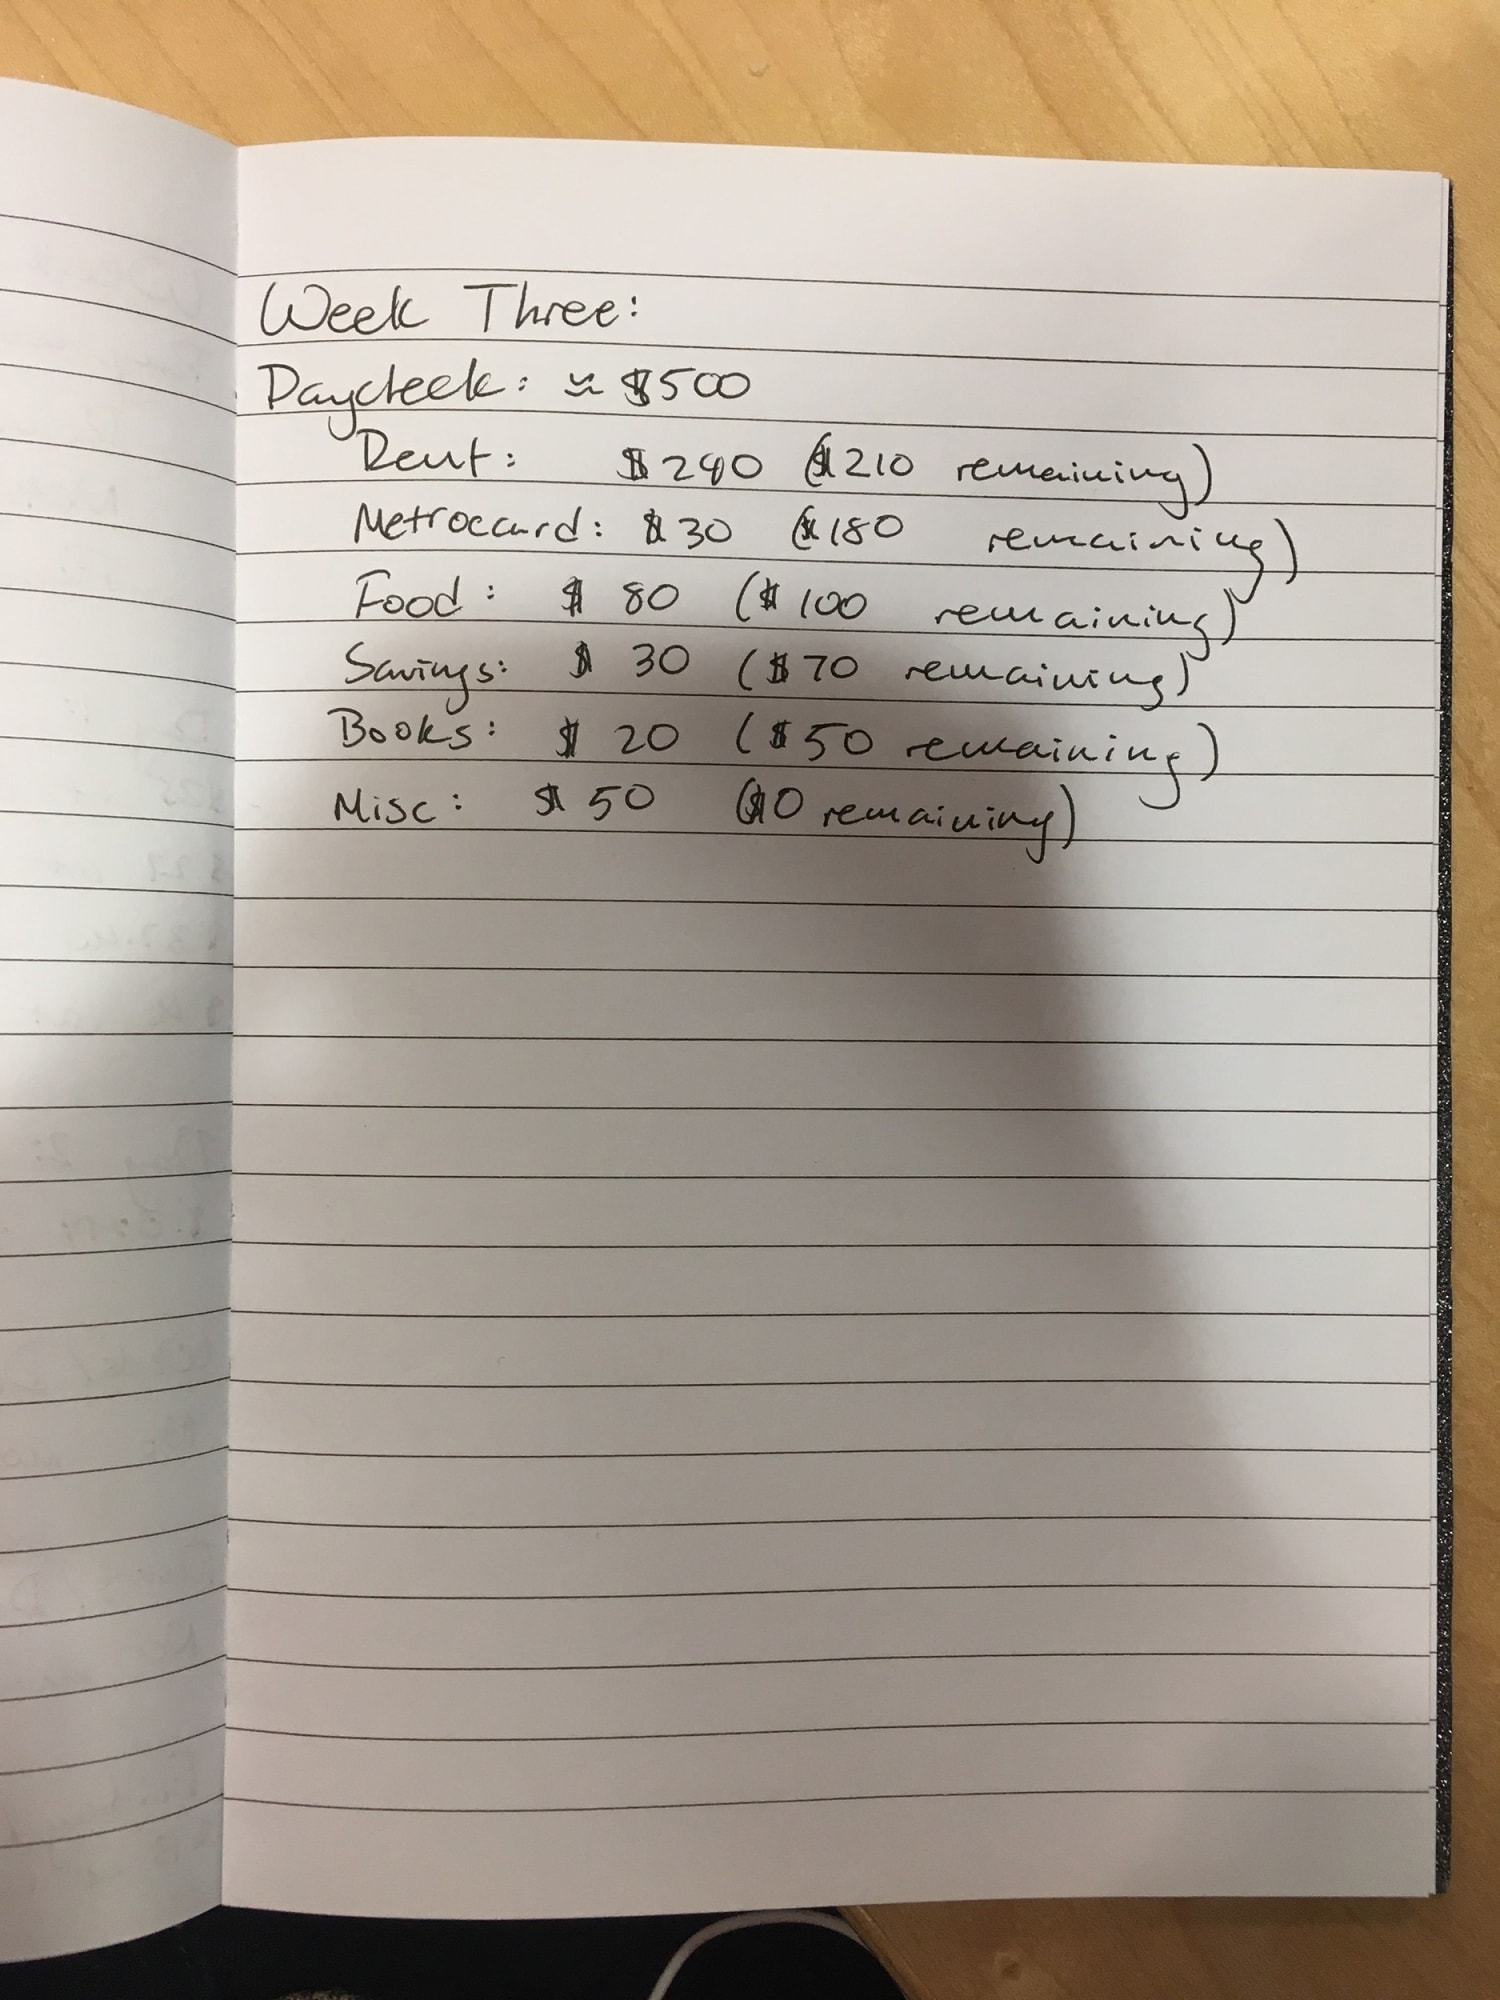 Week Three:
Paycheck: ≈ $500
Rent: $290 ($210 remaining)
Metrocard: $30 ($180 remaining)
Food: $80 ($100 remaining)
Savings: $30 ($70 remaining)
Books: $20 ($50 remaining)
Misc: $50 ($0 remaining)